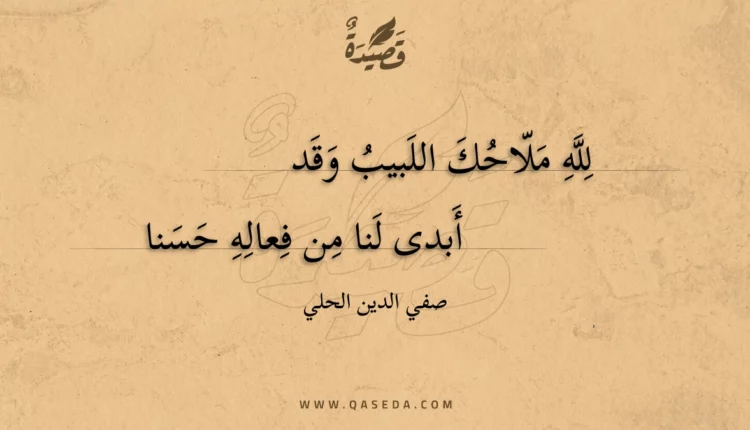 قَصِيْدَةٌ
لِلَّهِ مَلّاحُكَ اللَبيبُ وَقَد
أَبدى لَنا مِن فِعالِهِ حَسَنا
صفي الدين الحلي
WWW.QASEDA.COM